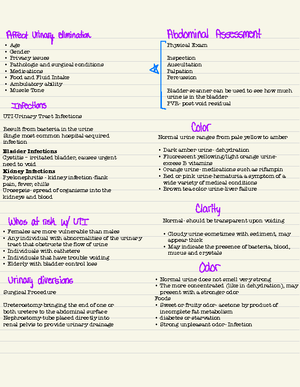 Affect Urinary Elimination
• Age
• Gender
• Privacy issues
• Pathologic and surgical conditions
• Medications
• Food and Fluid Intake
• Ambulatory ability
• Muscle Tone
Infections
UTI-Urinary Tract Infections
Result from bacteria in the urine
Single most common hospital acquired
infection
Bladder Infections
Cystitis - irritated bladder, causes urgent
need to void
Kidney Infections
Pyelonephritis - kidney infection flank
pain, fever, chills
Urosepsis- spread of organisms into the
kidneys and blood
Whos at risk w/ UTI
• Females are more vulnerable than males
• Any individual with abnormalities of the urinary
tract that obstructs the flow of urine
• Individuals with catheters
• Individuals that have trouble voiding
• Elderly with bladder control loss
Urinary diversions
Surgical Procedure
Ureterostomy-bringing the end of one or
both ureters to the abdominal surface
Nephrostomy-tube placed directly into
renal pelvis to provide urinary drainage
Abdominal Assessment
Physical Exam
Inspection
Auscultation
Palpation
Percussion
Bladder scanner can be used to see how much
urine is in the bladder
PVR- post void residual
Color
Normal urine ranges from pale yellow to amber
• Dark amber urine- dehydration
• Fluorescent yellow/light orange urine-
excess B vitamins
• Orange urine- medications such as rifampin
• Red or pink urine-hematuria a symptom of a
wide variety of medical conditions
• Brown tea color urine-liver failure
Clarity
Normal- should be transparent upon voiding
• Cloudy urine sometimes with sediment, may
appear thick
• May indicate the presence of bacteria, blood,
mucus and crystals
Odor
• Normal urine does not smell very strong
• The more concentrated (like in dehydration), may
present with a stronger odor
Foods
• Sweet or fruity odor- acetone by product of
incomplete fat metabolism
• diabetes or starvation
• Strong unpleasant odor- Infection